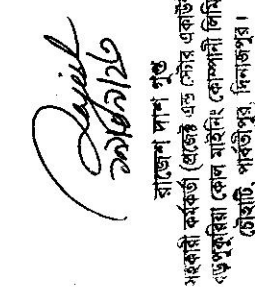 রাজেশ দাশ গুপ্ত
সহকারী কর্মকর্তা (প্রজেক্ট এন্ড স্টোর একাউ
বড়পুকুরিয়া কোল মাইনিং কোম্পানী লিমি
চৌহাটি, পার্বতীপুর, দিনাজপুর।